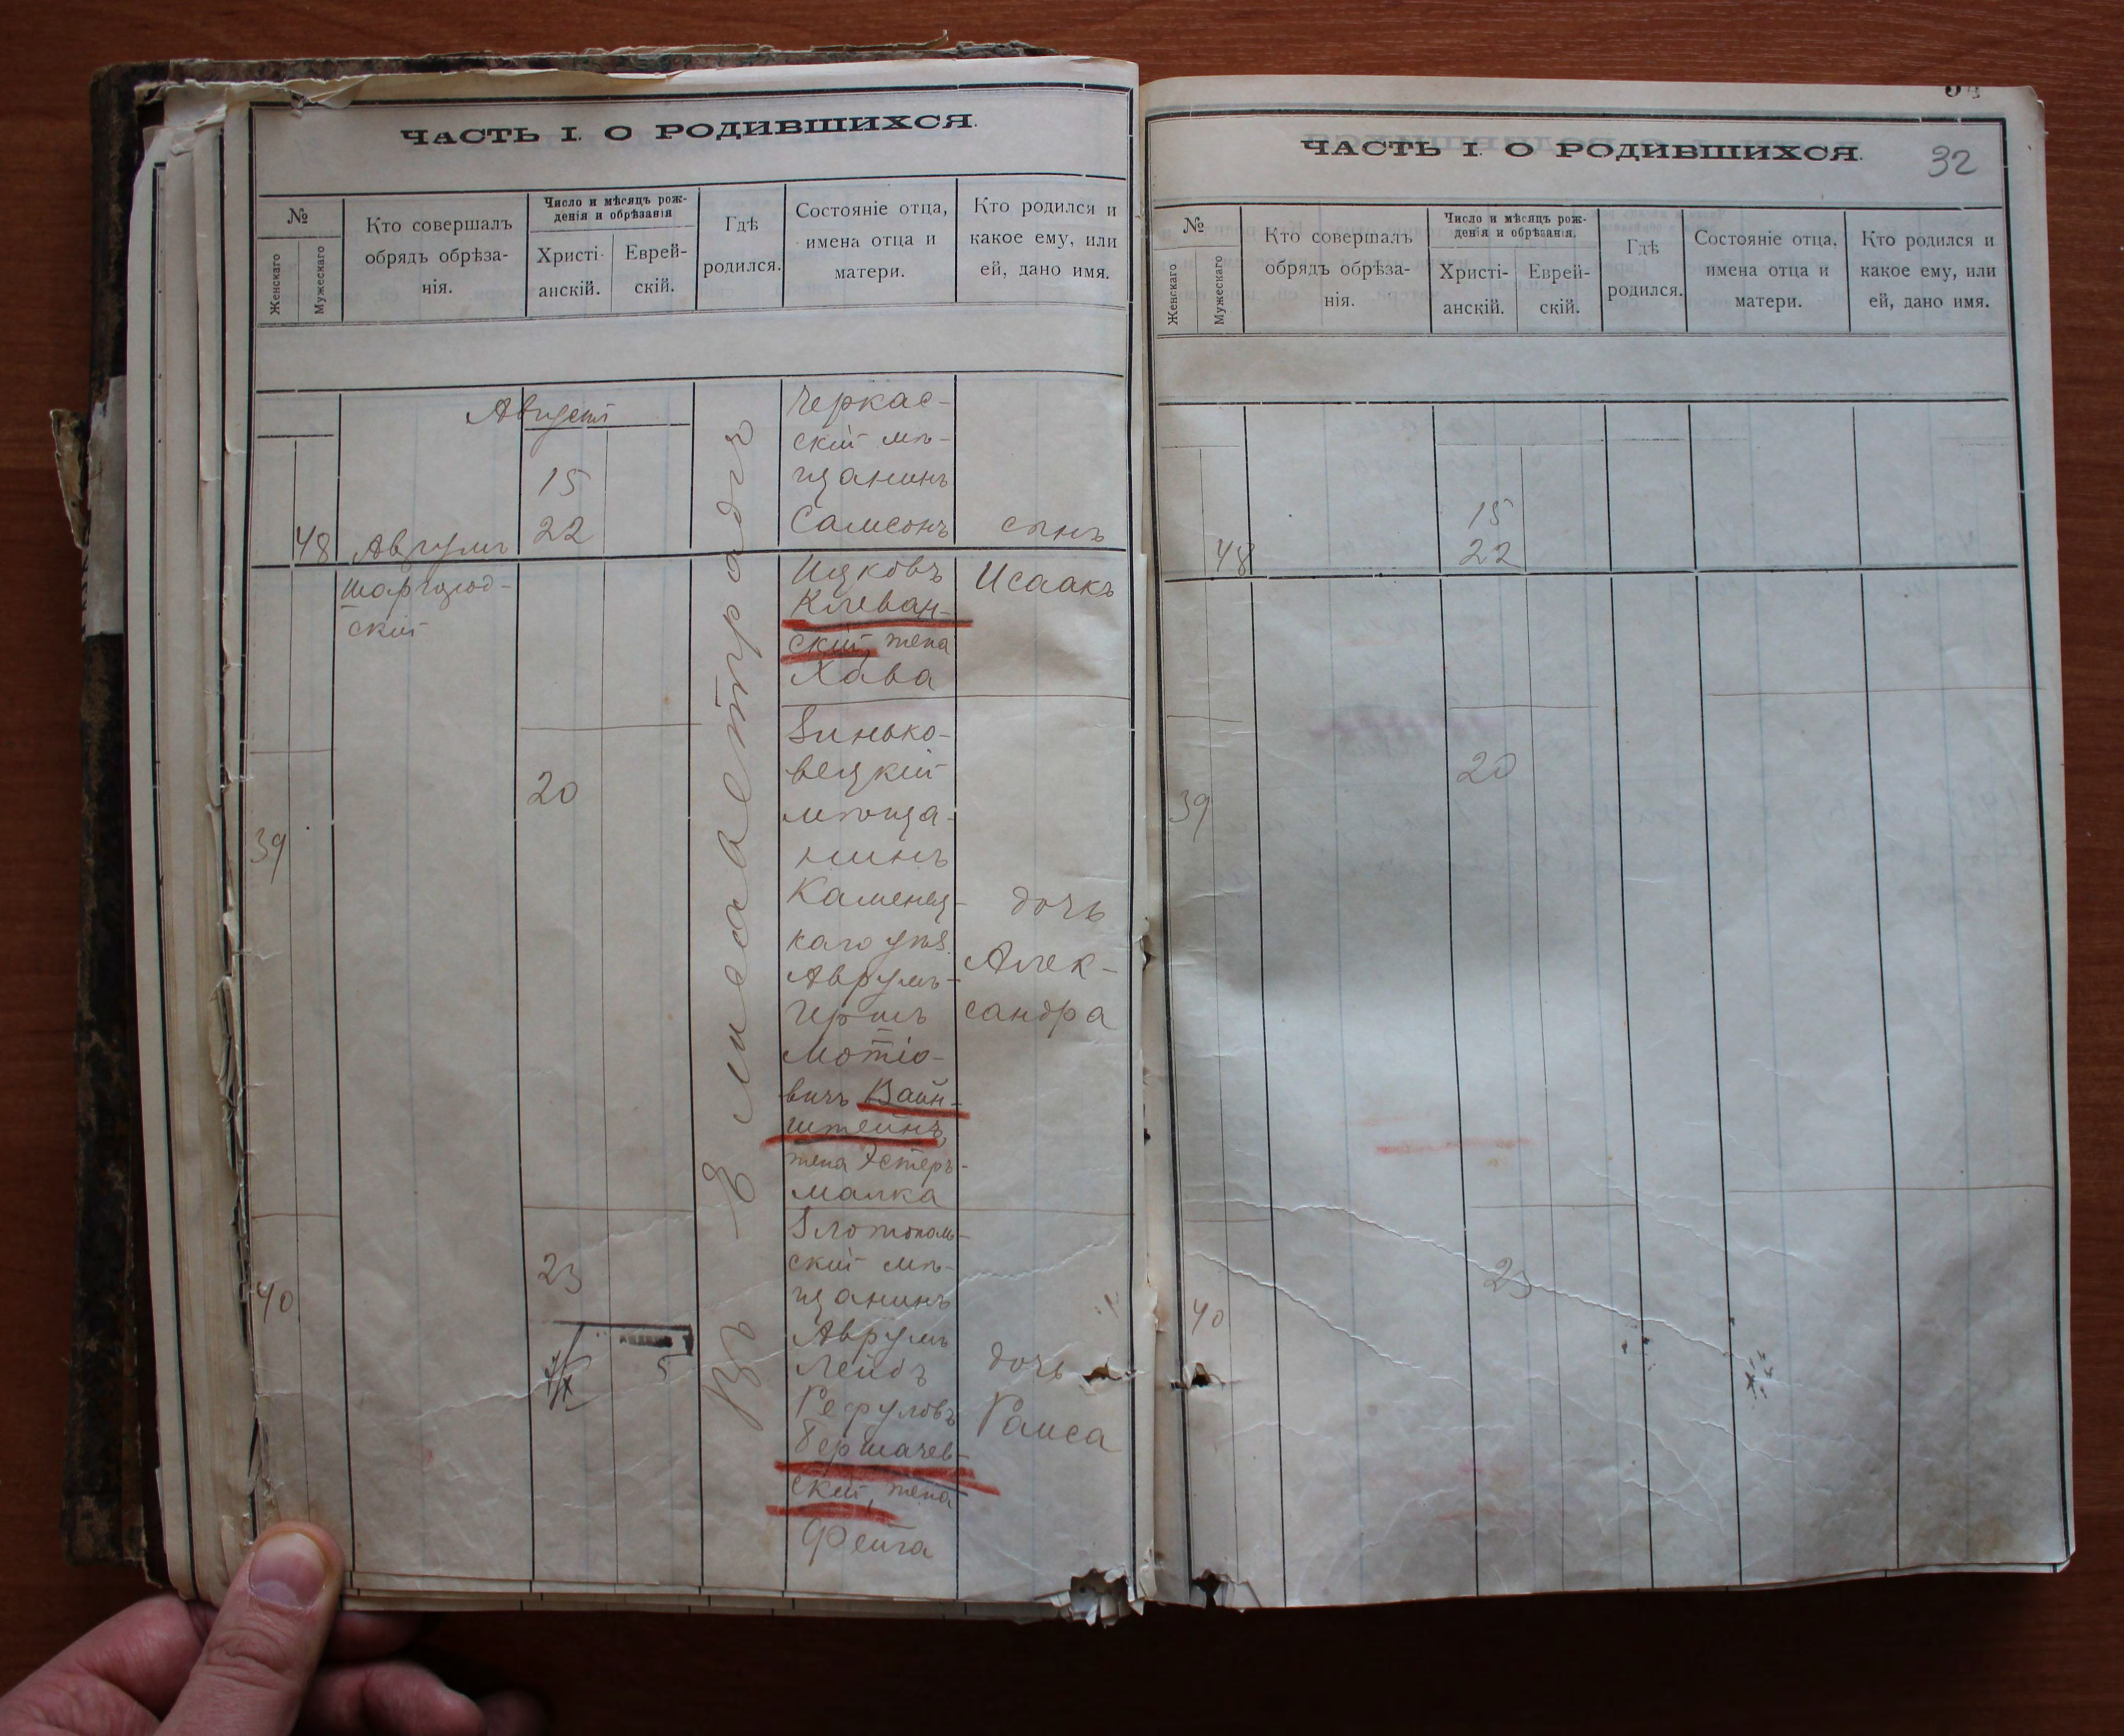 ЧАСТЬ I. О РОДИВШИХСЯ.
№
Женскаго
Мужескаго
Кто совершалъ
обрядъ обрѣза-
нія.
Число и мѣсяцъ рож-
денія и обрѣзанія
Христі-
анскій.
Еврей-
скій.
Гдѣ
родился.
Состояніе отца,
имена отца и
матери.
Кто родился и
какое ему, или
ей, дано имя.
Августъ
48
Аврумъ
Шаргород-
скій
15
22
Въ Елисаветградѣ
Черкас-
скій мѣ-
щанинъ
Самсонъ
Ицковъ
Клеван-
скій, жена
Хава
сынъ
Исаакъ
39
20
Зинько-
вецкій
мѣща-
нинъ
Каменец-
каго уѣз.
Аврумъ-
Гершъ
Мотіо-
вичъ Вайн-
штейнъ,
жена Эстеръ-
Малка
дочь
Алек-
сандра
40
23
5
Златополь-
скій мѣ-
щанинъ
Аврумъ
Лейбъ
Рефуловъ
Бершачев-
скій, жена
Фейга
дочь
Раиса
ЧАСТЬ I. О РОДИВШИХСЯ.
32
№
Женскаго
Мужескаго
Кто совершалъ
обрядъ обрѣза-
нія.
Число и мѣсяцъ рож-
денія и обрѣзанія.
Христі-
анскій.
Еврей-
скій.
Гдѣ
родился.
Состояніе отца,
имена отца и
матери.
Кто родился и
какое ему, или
ей, дано имя.
48
15
22
39
20
40
23